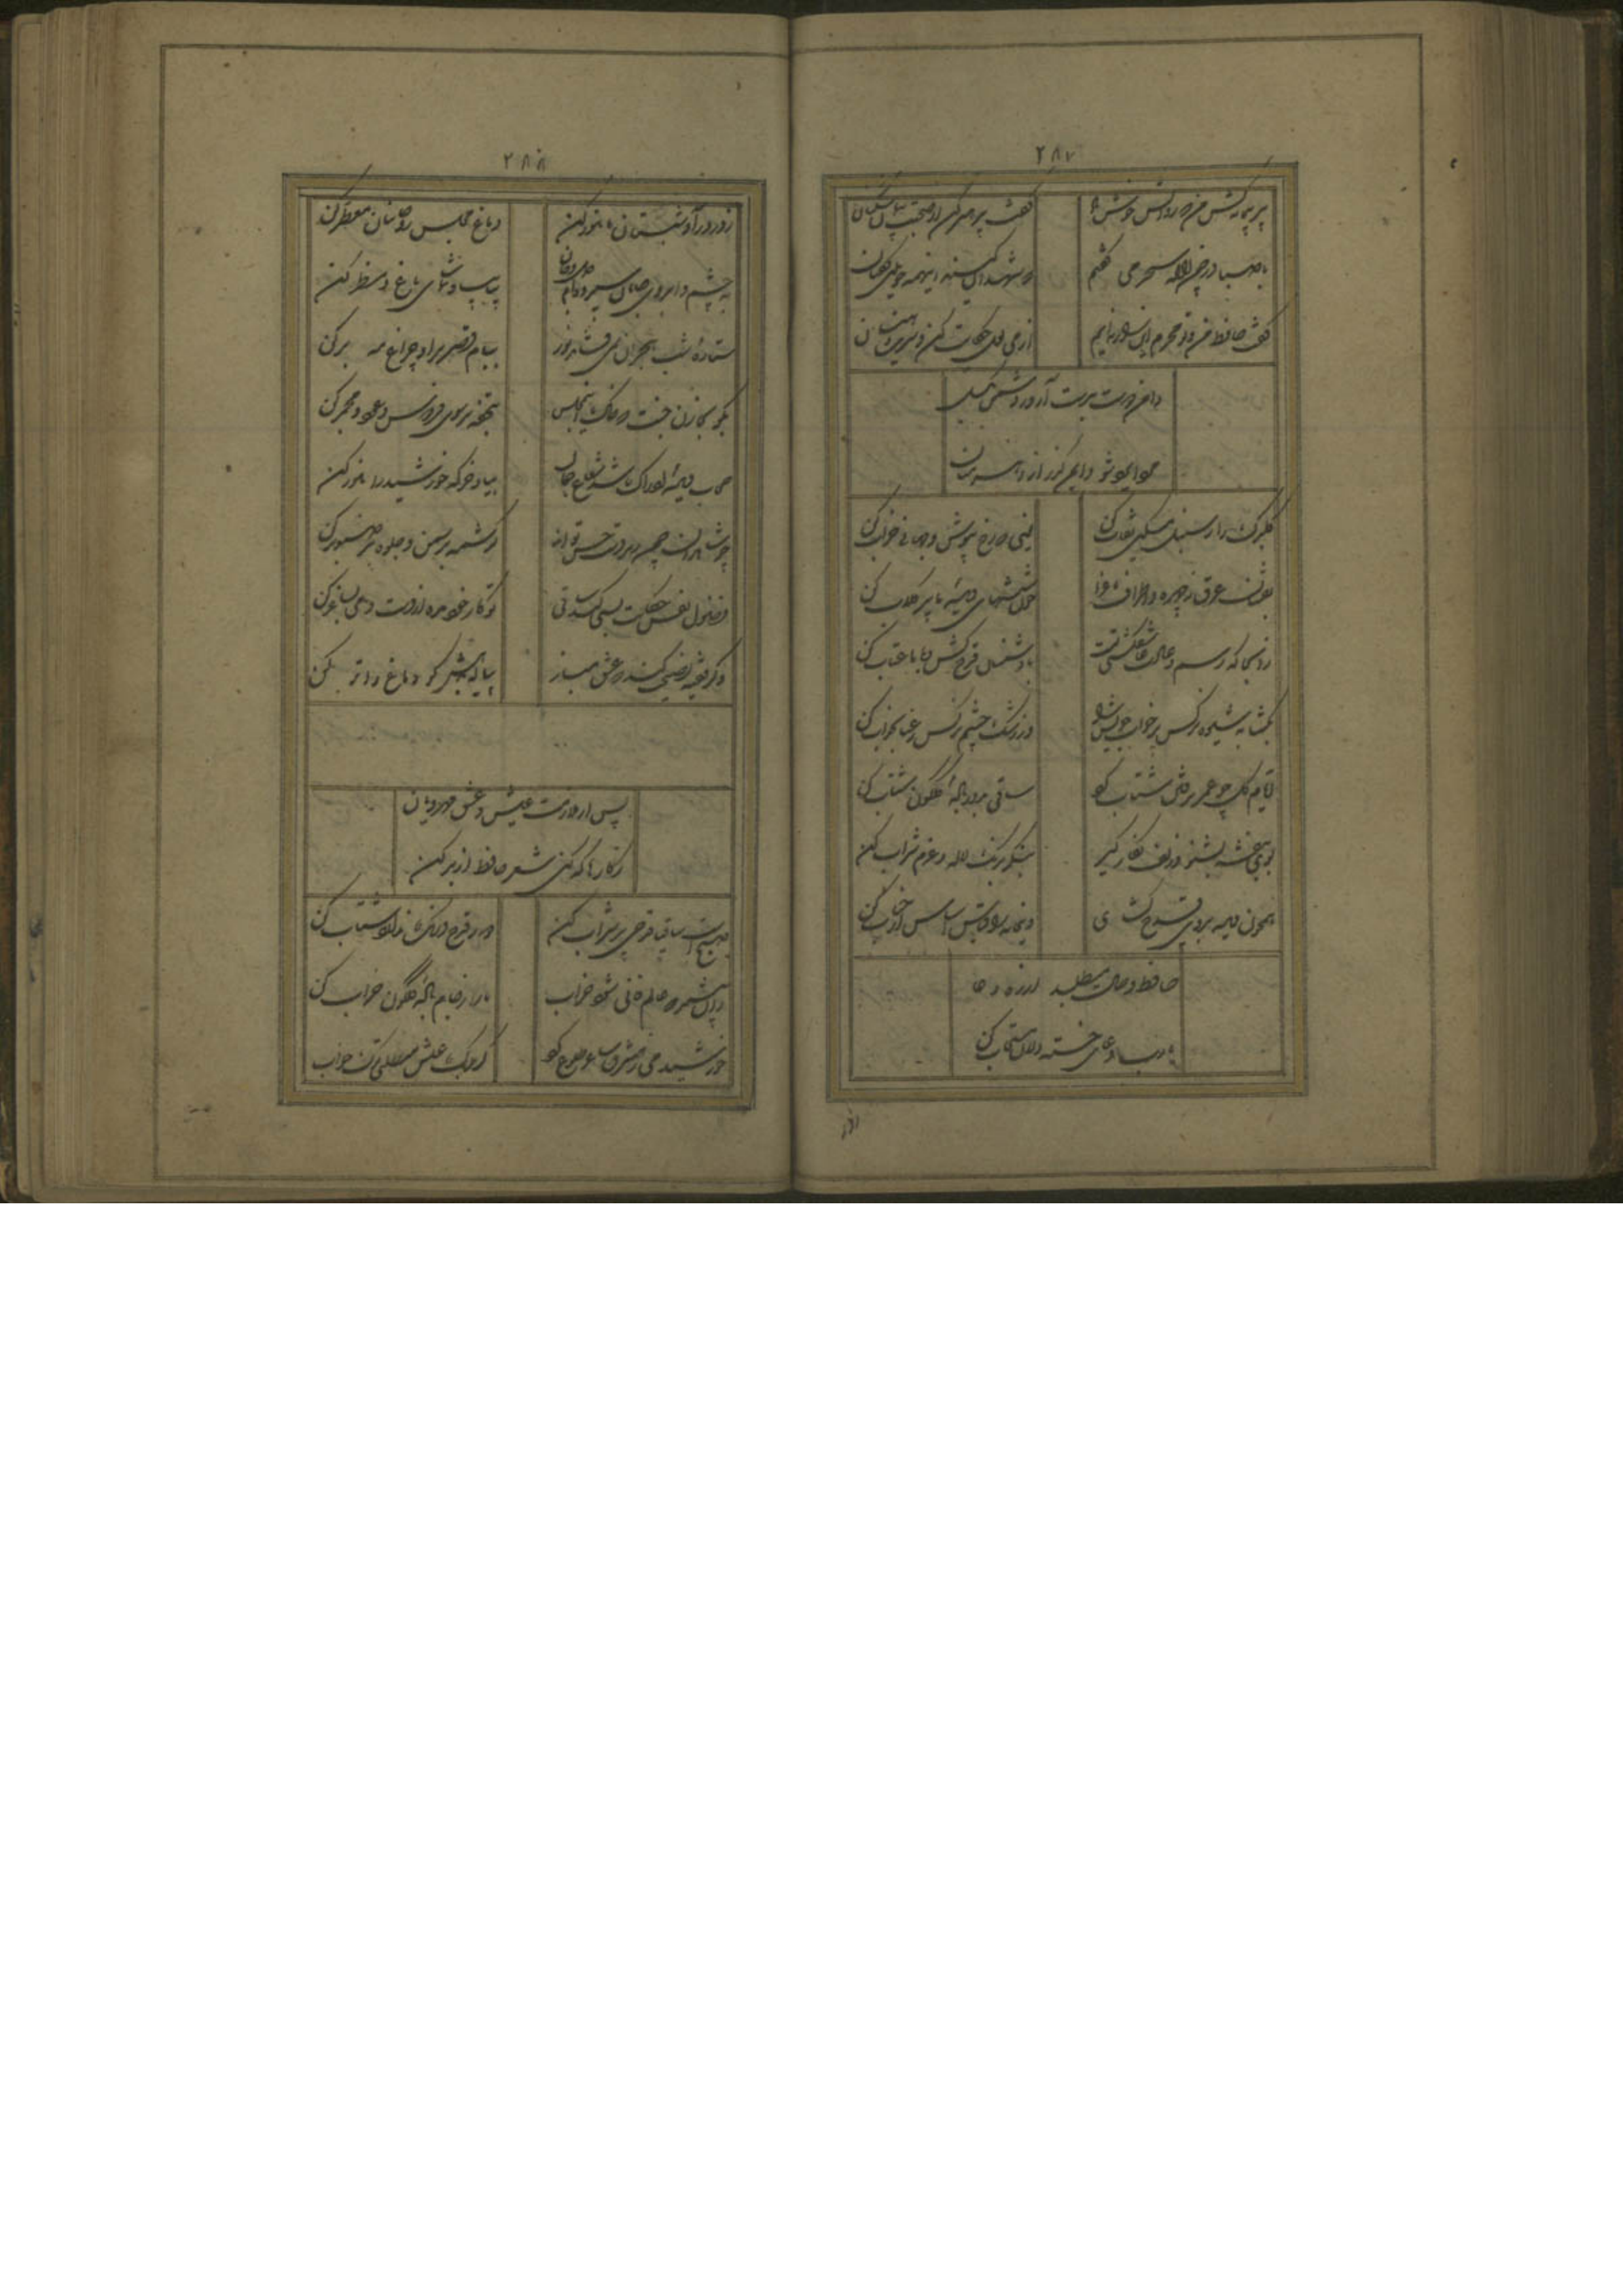 ۲۸۷
پیر پیمانه کش من که روانش خوش باد گفت پرهیز کن از صحبت پیمان شکنان
با صبا در چمن لاله سحر می گفتم که شهیدان که اند این همه خونین کفنان
گفت حافظ من و تو محرم این راز نه ایم از می لعل حکایت کن و شیرین دهنان
دامن دوست بدست آر و ز دشمن بگسل
گلبرگ را ز سنبل مشکین نقاب کن یعنی که رخ بپوش و جهانی خراب کن
بفشان عرق ز چهره و اطراف باغ را چون شیشهای دیده ما پر گلاب کن
زانجا که رسم و عادت عاشق کشی تست با دشمنان قدح کش و با ما عتاب کن
بگشا به شیوه نرگس پر خواب مست را وز رشک چشم نرگس رعنا بخواب کن
ایام گل چو عمر برفتن شتاب کرد ساقی بدور باده گلگون شتاب کن
بوی بنفشه بشنو و زلف نگار گیر بنگر برنگ لاله و عزم شراب کن
همچون حباب دیده بروی قدح گشای وین خانه را قیاس اساس از حباب کن
حافظ وصال میطلبد از ره دعا
یا رب دعای خسته دلان مستجاب کن
ز در درآ
۲۸۸
ز در درآ و شبستان ما منور کن دماغ مجلس روحانیان معطر کن
به چشم و ابروی جانان سپرده ام دل و جان بیا بیا و تماشای باغ و منظر کن
ستاره شب هجران نمی فشاند نور ببام قصر برآ و چراغ مه بر کن
بگو بخازن جنت که خاک این مجلس بتحفه بر سوی فردوس و عود مجمر کن
حجاب دیده ادراک شد شعاع جمال بیا و خرگه خورشید را منور کن
چو شاهدان چمن زیردست حسن تو اند کرشمه بر سمن و جلوه بر صنوبر کن
فضول نفس حکایت بسی کند ساقی تو کار خود مده از دست و می بساغر کن
وگر فقیه نصیحت کند که عشق مباز پیاله بدهش گو دماغ را تر کن
پس از ملازمت عیش و عشق مهرویان
ز کارها که کنی شعر حافظ از بر کن
صبح است ساقیا قدحی پر شراب کن دور فلک درنگ ندارد شتاب کن
زان پیشتر که عالم فانی شود خراب ما را ز جام باده گلگون خراب کن
خورشید می ز مشرق ساغر طلوع کرد گر برگ عیش میطلبی ترک خواب کن